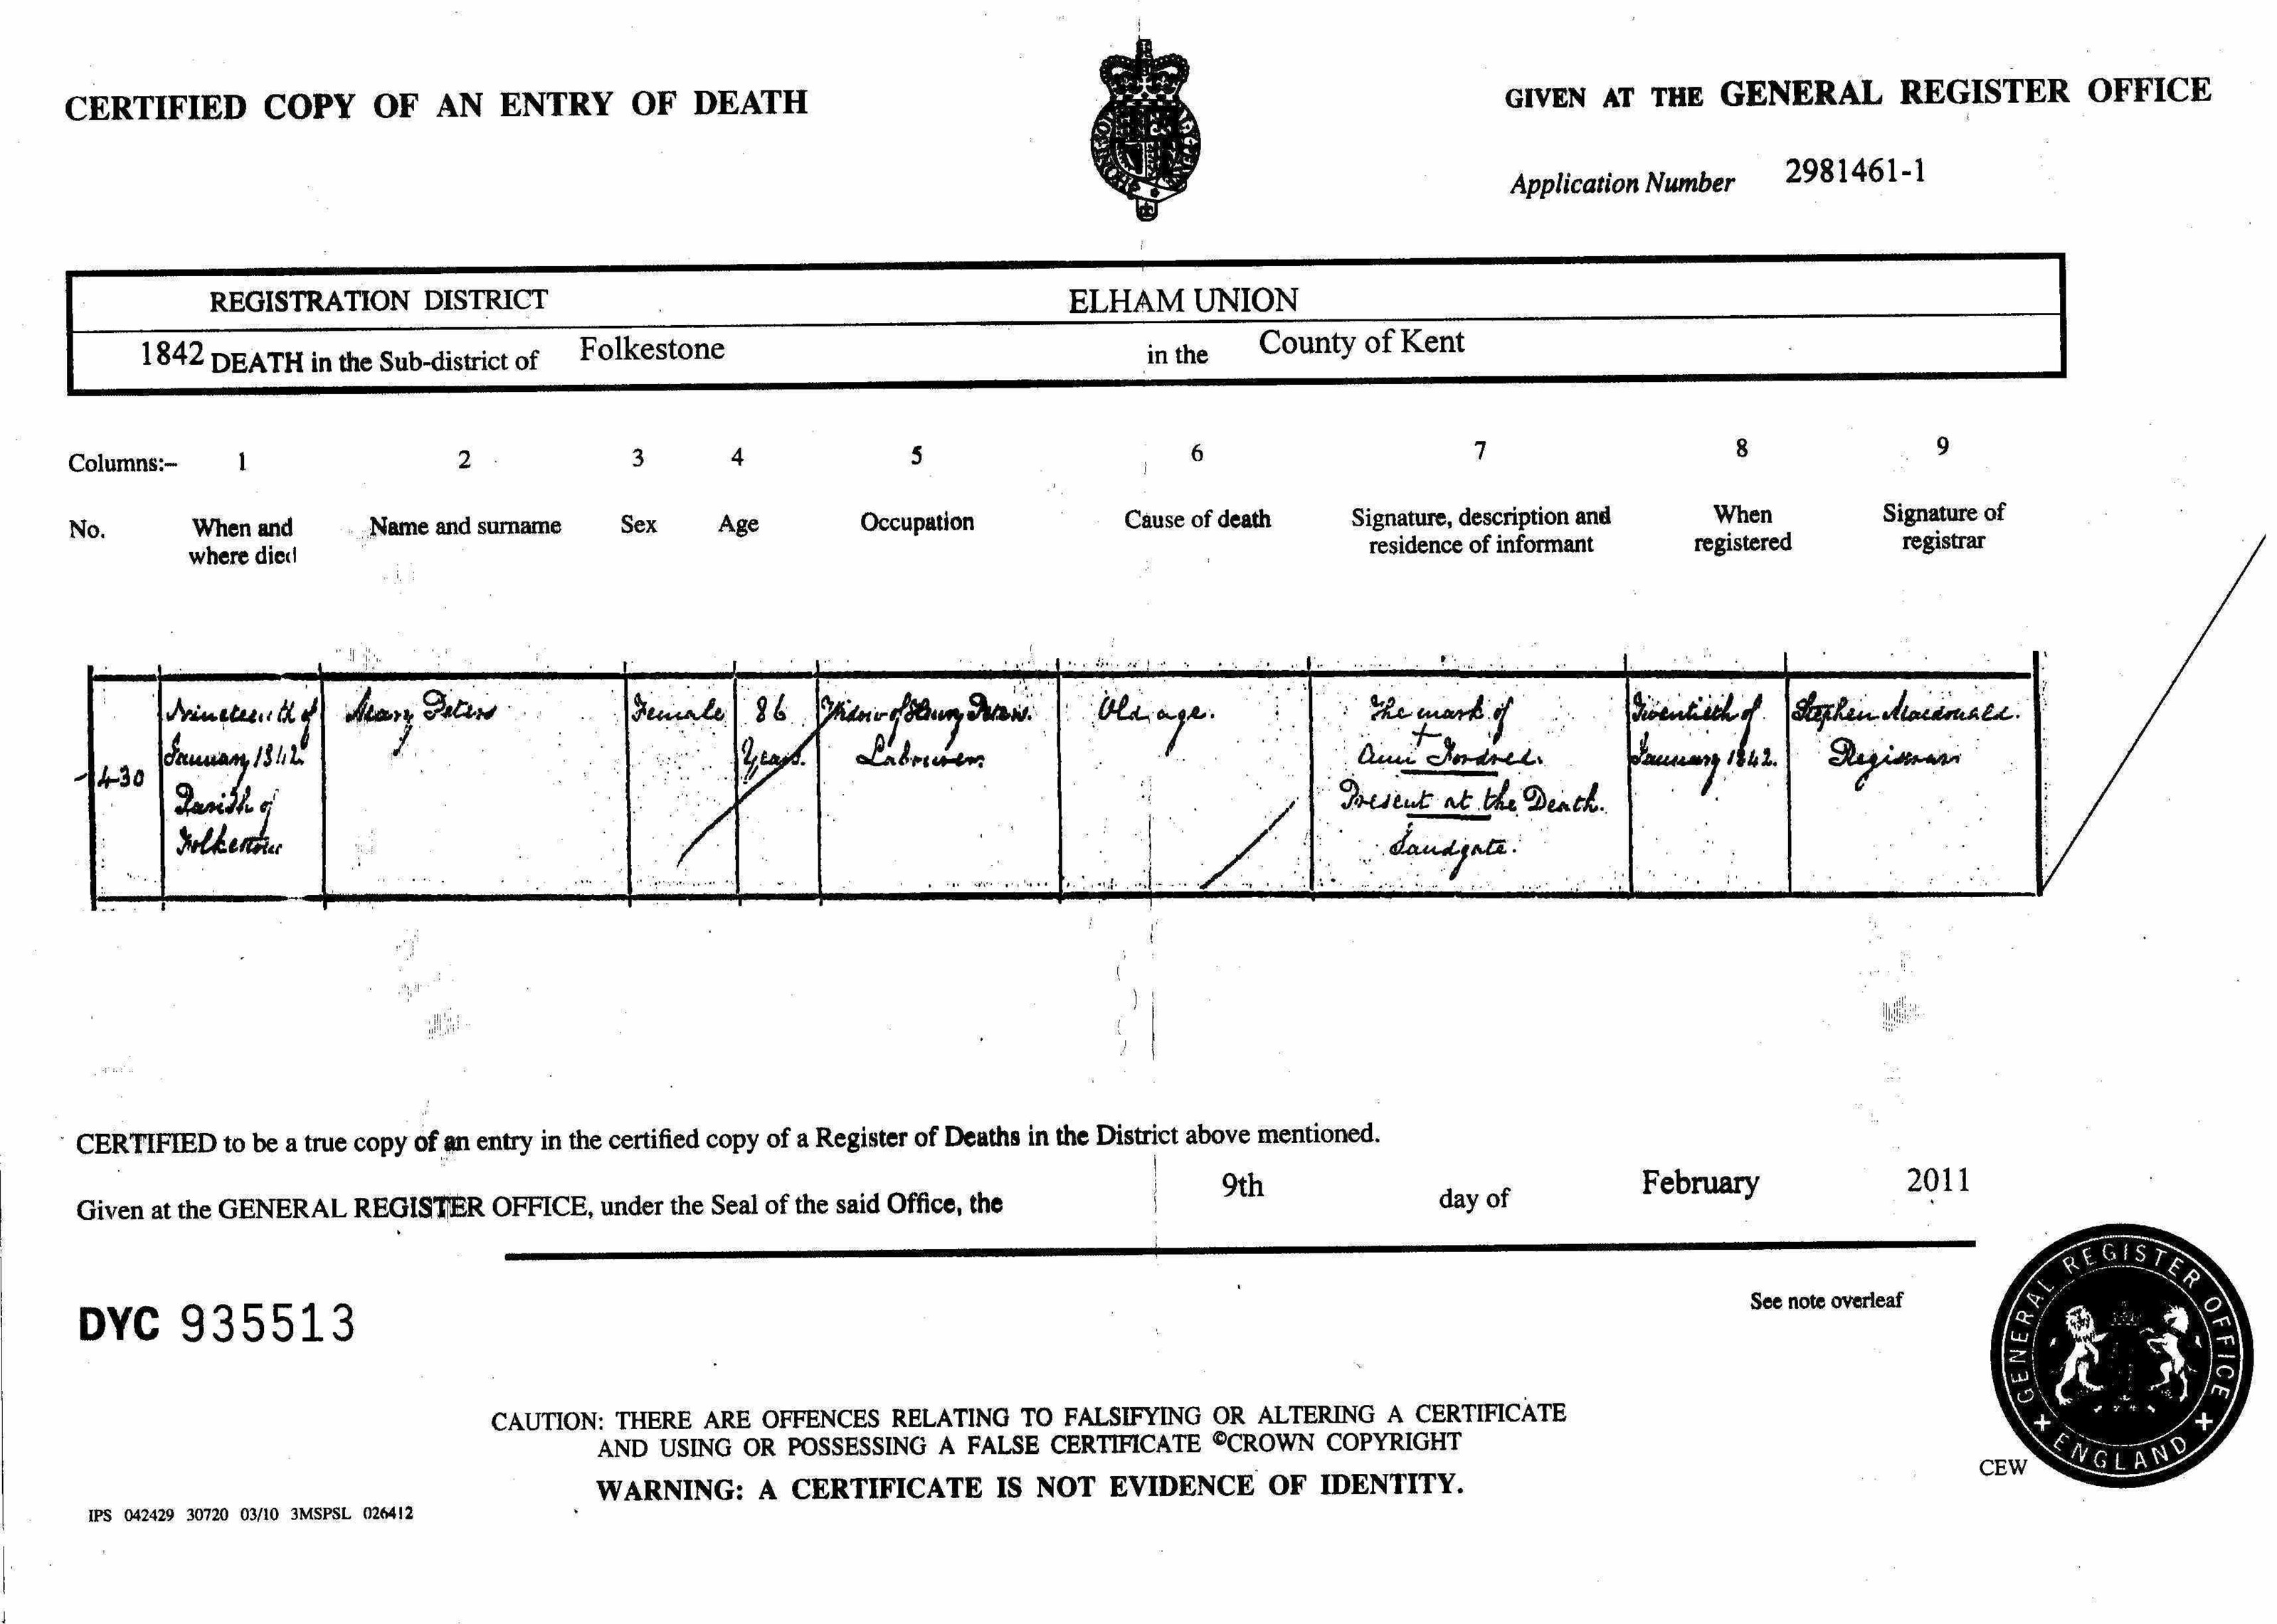 CERTIFIED COPY OF AN ENTRY OF DEATH
GIVEN AT THE GENERAL REGISTER OFFICE
Application Number 2981461-1
REGISTRATION DISTRICT ELHAM UNION
1842 DEATH in the Sub-district of Folkestone in the County of Kent
Columns:- 1 2 3 4 5 6 7 8 9
No.
When and
where died
Name and surname
Sex
Age
Occupation
Cause of death
Signature, description and
residence of informant
When
registered
Signature of
registrar
430
Nineteenth of
January 1842
Parish of
Folkestone
Mary Peters
Female
86
Years.
Widow of Henry Peters.
Labourer
Old age.
The mark of
+
Ann Fordred.
Present at the Death.
Sandgate.
Twentieth of
January 1842.
Stephen Macdonald.
Registrar
CERTIFIED to be a true copy of an entry in the certified copy of a Register of Deaths in the District above mentioned.
Given at the GENERAL REGISTER OFFICE, under the Seal of the said Office, the 9th day of February 2011
See note overleaf
DYC 935513
GENERAL REGISTER OFFICE
ENGLAND
CAUTION: THERE ARE OFFENCES RELATING TO FALSIFYING OR ALTERING A CERTIFICATE
AND USING OR POSSESSING A FALSE CERTIFICATE ©CROWN COPYRIGHT
CEW
WARNING: A CERTIFICATE IS NOT EVIDENCE OF IDENTITY.
IPS 042429 30720 03/10 3MSPSL 026412